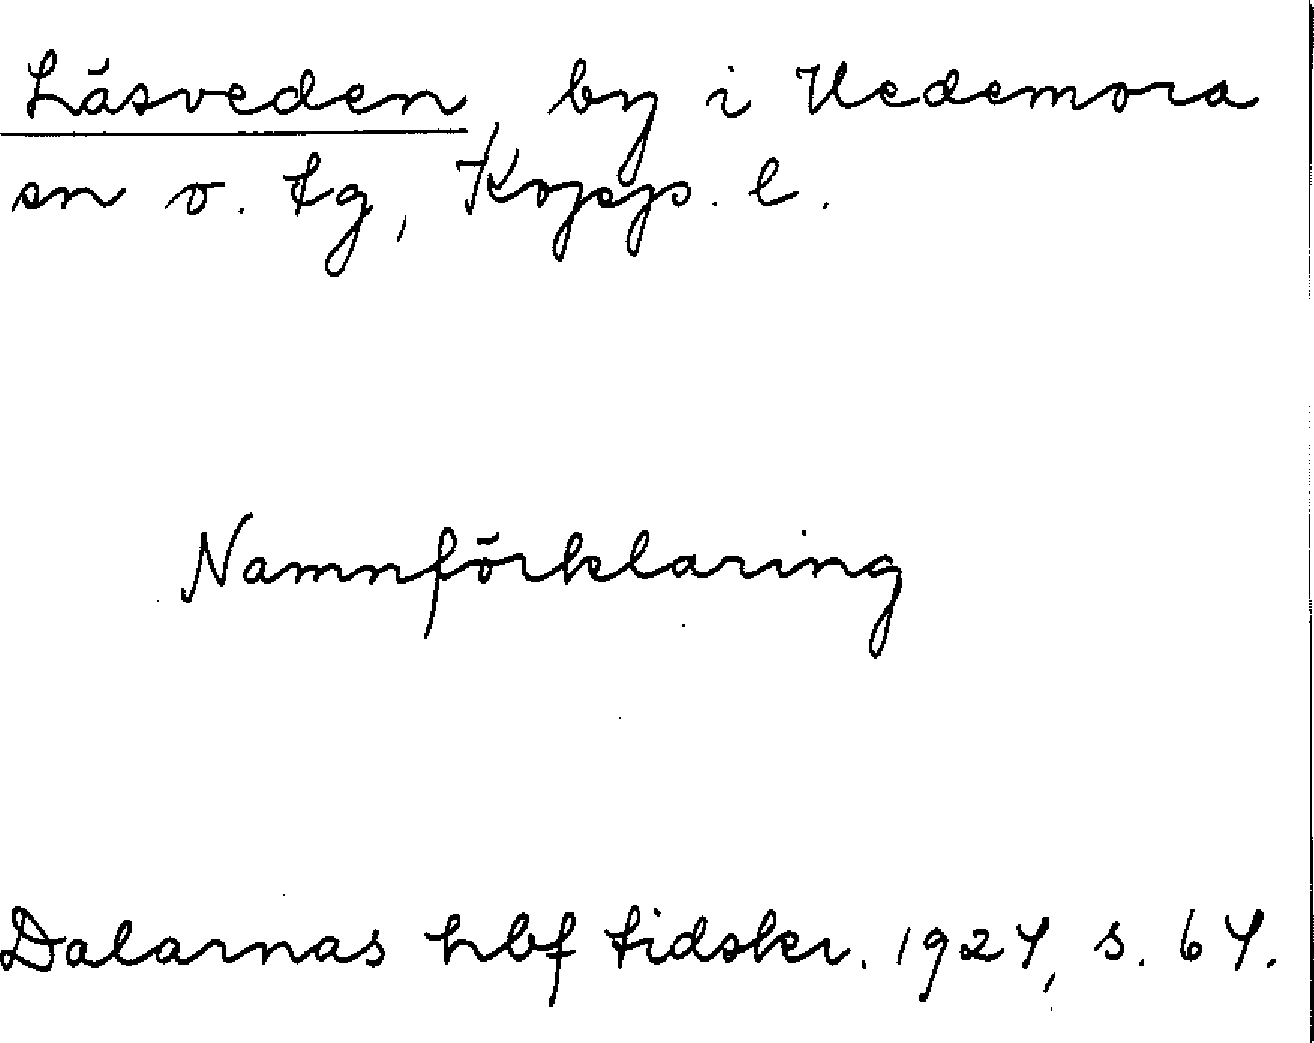 Läsveden, by i Vedemora
sn o. tg, Kopp. l.
Namnförklaring
Dalarnas hbf tidskr. 1924, s. 64.